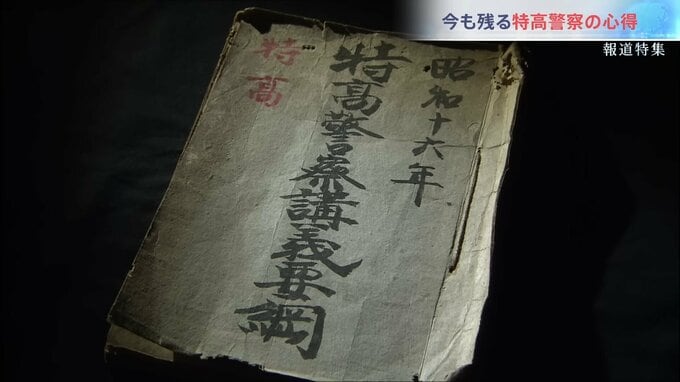 今も残る特高警察の心得
報道特集
昭和十六年
特高警察講義要綱
特高